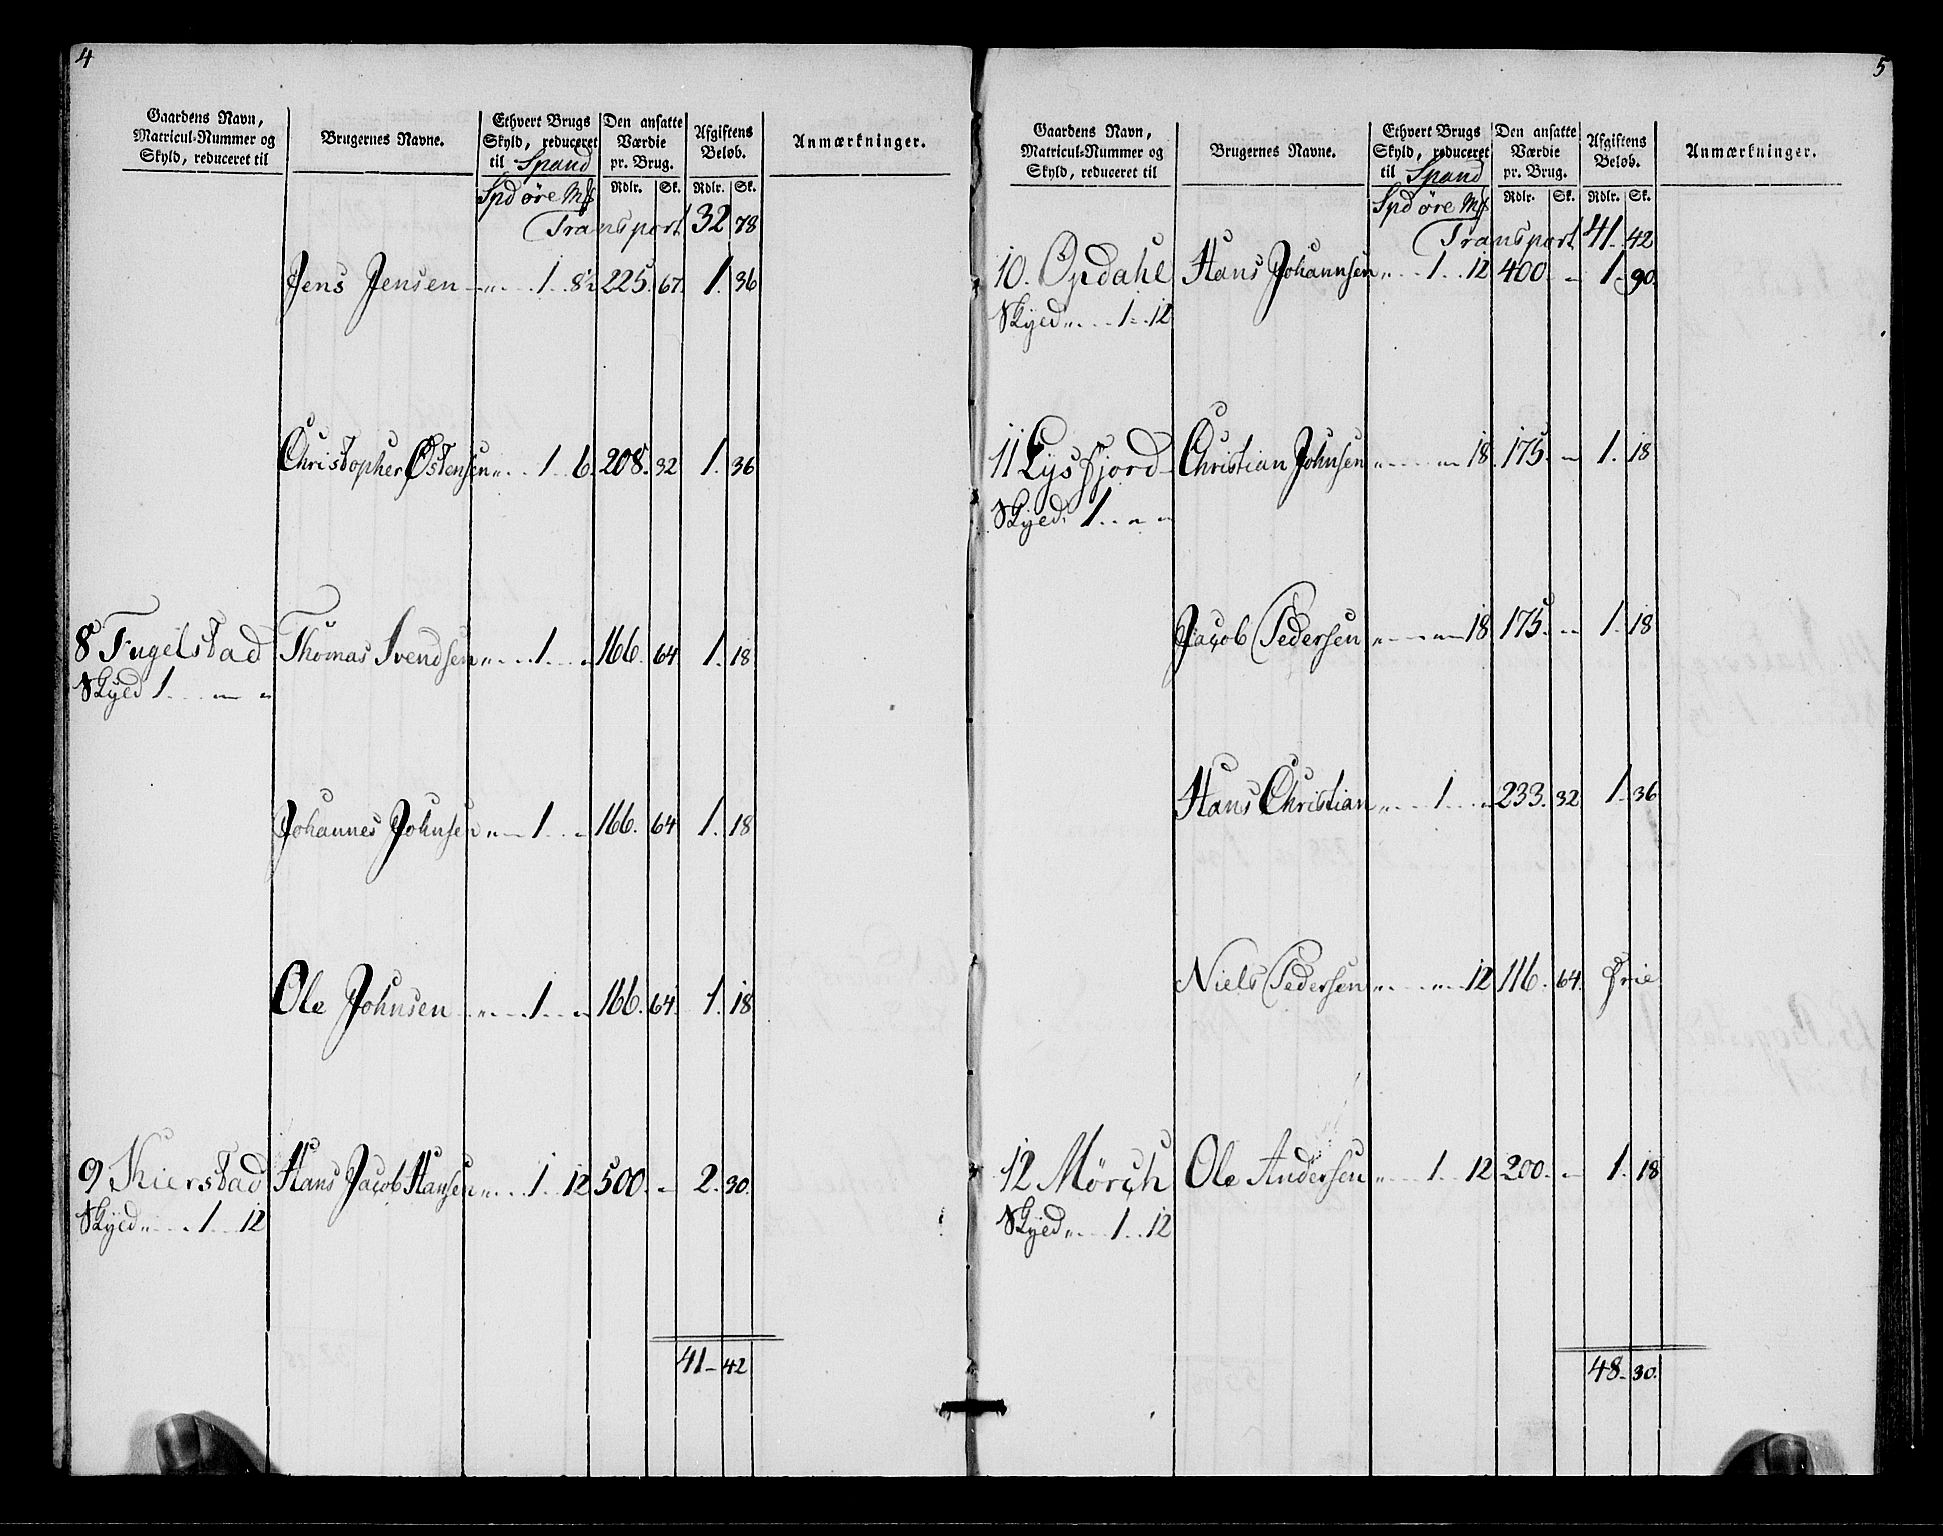 4
Gaardens Navn, Matricul-Nummer og Skyld, reduceret til
Brugernes Navne.
Ethvert Brugs Skyld, reduceret til Spand
Den ansatte Værdie pr. Brug.
Afgiftens Beløb.
Anmærkninger.
Spd øre Mk Rdlr. Sk. Rdlr. Sk.
Transport 32 78
Jens Jensen „ 1 8½ 225. 67. 1. 36
Christopher Østensen „ 1 6. 208. 32 1. 36
8 Fugelstad Thomas Svendsen „ 1 „ 166. 64 1. 18
Skyld 1 „ „
Johannes Johnsen „ 1 „ 166. 64 1. 18
Ole Johnsen „ 1 „ 166. 64. 1. 18
9 Kierstad Hans Jacob Hansen „ 1 12 500. „ 2. 30.
Skyld „ 1 12
41 42
5
Gaardens Navn, Matricul-Nummer og Skyld, reduceret til
Brugernes Navne.
Ethvert Brugs Skyld, reduceret til Spand
Den ansatte Værdie pr. Brug.
Afgiftens Beløb.
Anmærkninger.
Spd øre Mk Rdlr. Sk. Rdlr. Sk.
Transport 41 42
10. Opdahl Hans Johannsen „ 1 12 400 „ 1 90.
Skyld „ 1 12
11 Lysfjord Christian Johnsen „ „ 18. 175. „ 1. 18
Skyld 1 „ „
Jacob Pedersen „ „ 18 175. „ 1. 18
Hans Christian „ 1 „ 233. 32 1. 36
Niels Pedersen „ „ 12 116. 64. Frie
12 Mörch Ole Andersen „ 1 12 200. „ 1. 18
Skyld „ 1 12
48 30.